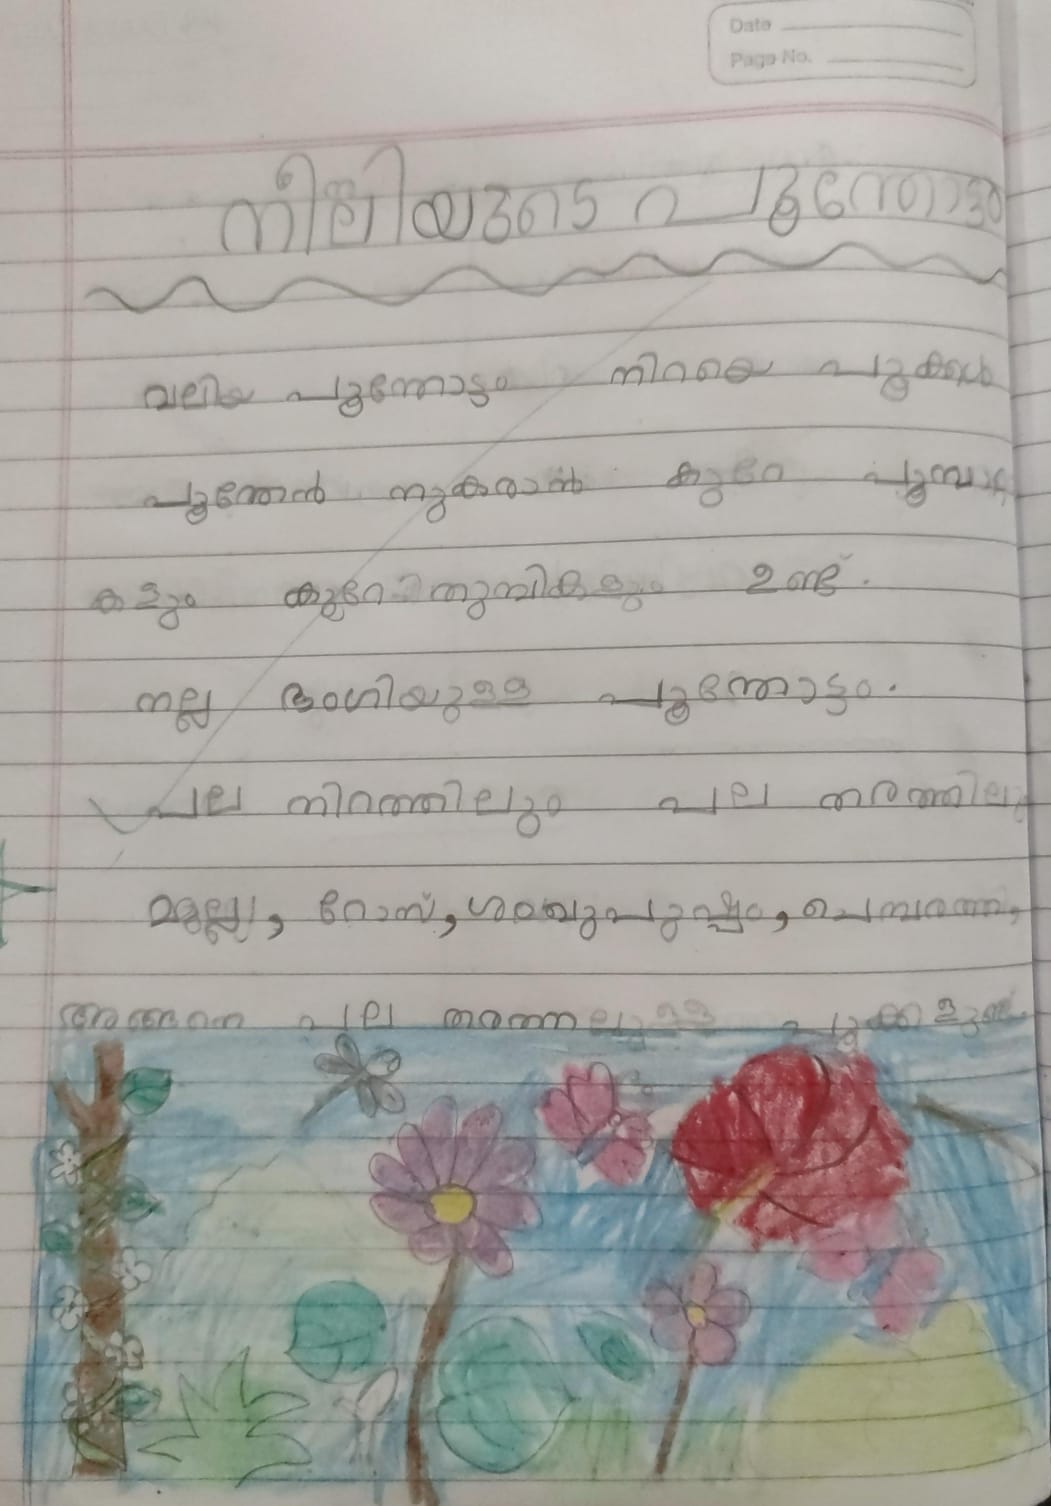 Date
Page No.
നീലിയുടെ പൂന്തോട്ടം
വലിയ പൂന്തോട്ടം നിറയെ പൂക്കൾ
പൂന്തേൻ നുകരാൻ കുറേ പൂമ്പാറ്റ
കളും കുറേ തുമ്പികളും ഉണ്ട്.
നല്ല ഭംഗിയുള്ള പൂന്തോട്ടം.
പല നിറത്തിലും പല തരത്തിലും
മുല്ല, റോസ്, ശംഖുപുഷ്പം, ചെമ്പരത്തി,
അങ്ങനെ പല തരത്തിലുള്ള പൂക്കളുണ്ട്.